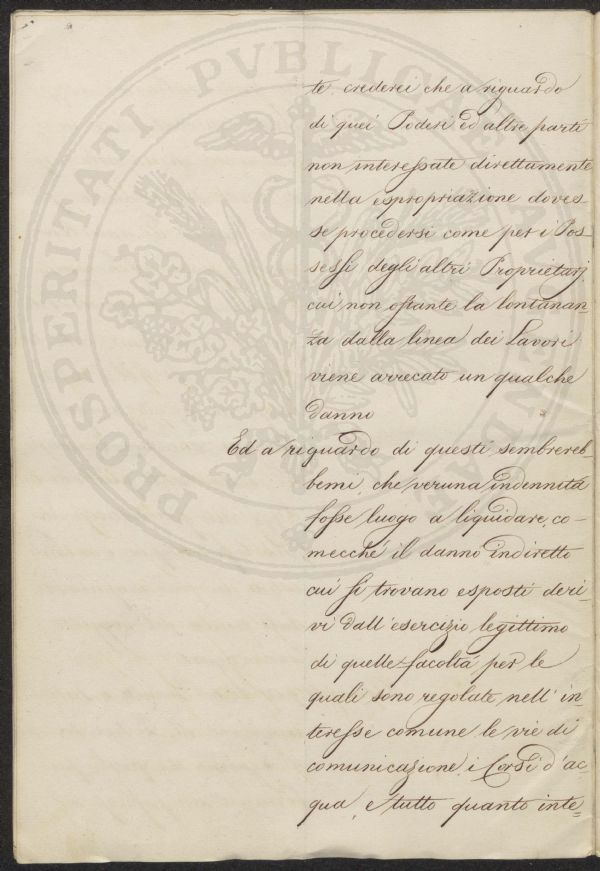 PROSPERITATI PVBLICAE AVGENDAE
te, crederei che a riguardo
di quei Poderi ed altre parti
non interessate direttamente
nella espropriazione doves-
se procedersi come per i Pos-
sessi degli altri Proprietarj
cui non ostante la lontanan-
za dalla linea dei Lavori
viene arrecato un qualche
danno
Ed a riguardo di questi sembrereb-
bemi, che veruna indennità
fosse luogo a liquidare, co-
mecché il danno indiretto
cui si trovano esposti deri-
vi dall'esercizio legittimo
di quelle facoltà per le
quali sono regolate nell'in-
teresse comune le vie di
comunicazione, i Corsi d'ac-
qua, e tutto quanto inte-